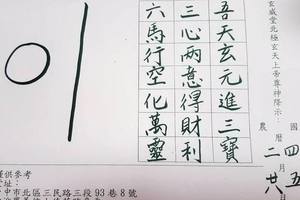 玄威堂北極玄天上帝尊神降示：
吾天玄元進三寶
三心两意得財利
六馬行空化萬靈
農
四五
二
僅供參考
址：
中市北區三民路三段93巷8號